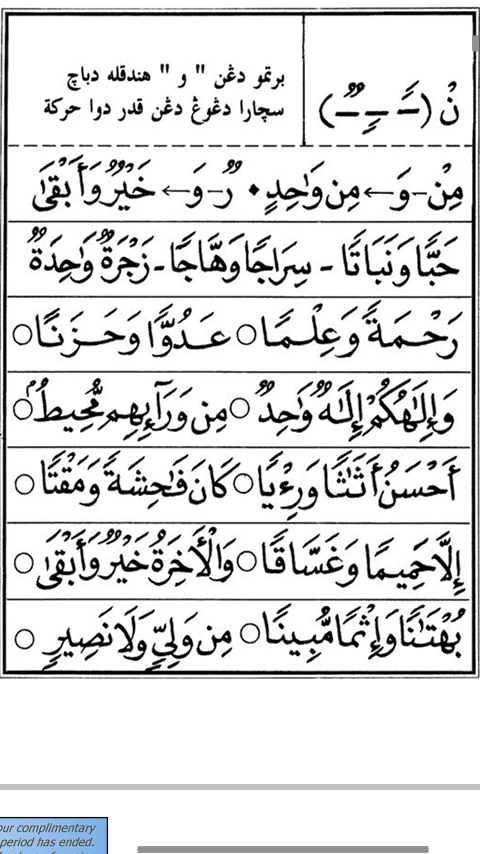 نْ (ـًـ ـٍـ ـٌـ)
برتمو دڠن " و " هندقله دباچ
سچارا دڠوڠ دڠن قدر دوا حركة
مِنْ-وَ←مِن وَٰحِدٍ • رٌ-وَ← خَيْرٌ وَأَبْقَىٰ
حَبًّا وَنَبَاتًا - سِرَاجًا وَهَّاجًا - زَجْرَةٌ وَٰحِدَةٌ
رَحْمَةً وَعِلْمًا ○ عَدُوًّا وَحَزَنًا ○
وَإِلَٰهُكُمْ إِلَٰهٌ وَٰحِدٌ ○ مِن وَرَآئِهِم مُّحِيطٌ ○
أَحْسَنُ أَثَٰثًا وَرِءْيًا ○ كَانَ فَٰحِشَةً وَمَقْتًا ○
إِلَّا حَمِيمًا وَغَسَّاقًا ○ وَالْأَخِرَةُ خَيْرٌ وَأَبْقَىٰ ○
بُهْتَٰنًا وَإِثْمًا مُّبِينًا ○ مِن وَلِيٍّ وَلَا نَصِيرٍ ○
our complimentary
period has ended.